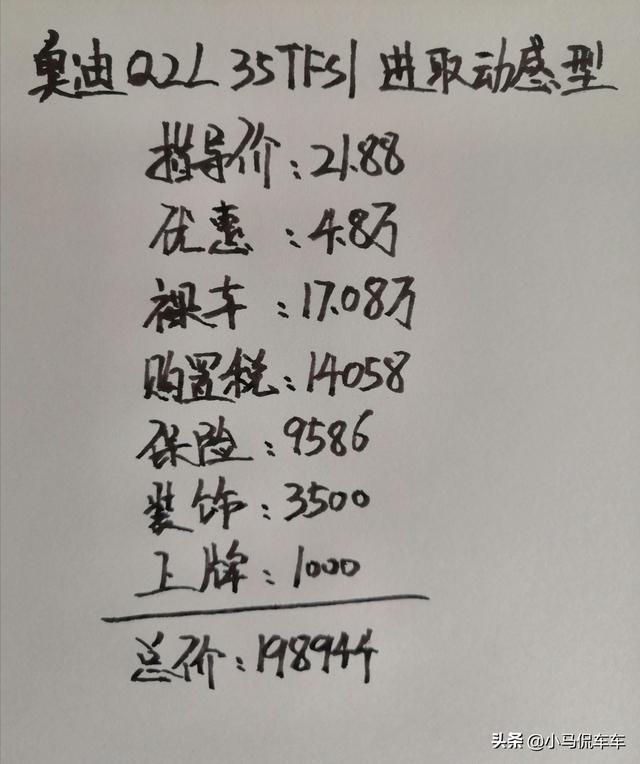 奥迪Q2L 35TFSI 进取动感型
指导价:21.88
优惠:4.8万
裸车:17.08万
购置税:14058
保险:9586
装饰:3500
上牌:1000
总价:198944
头条 @小马侃车车